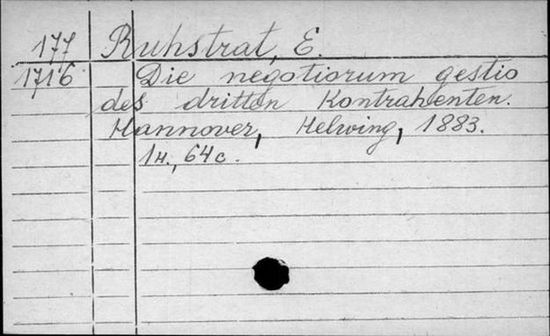 177 Ruhstrat, E.
1716 Die negotiorum gestio
des dritten Kontrahenten.
Hannover, Helwing, 1883.
1н., 64 с.